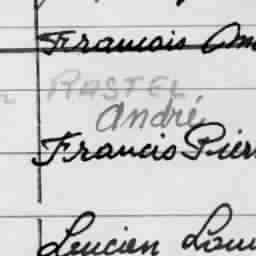 Francois Am
RASTEL
André
Francis Pier
Lucien Loui